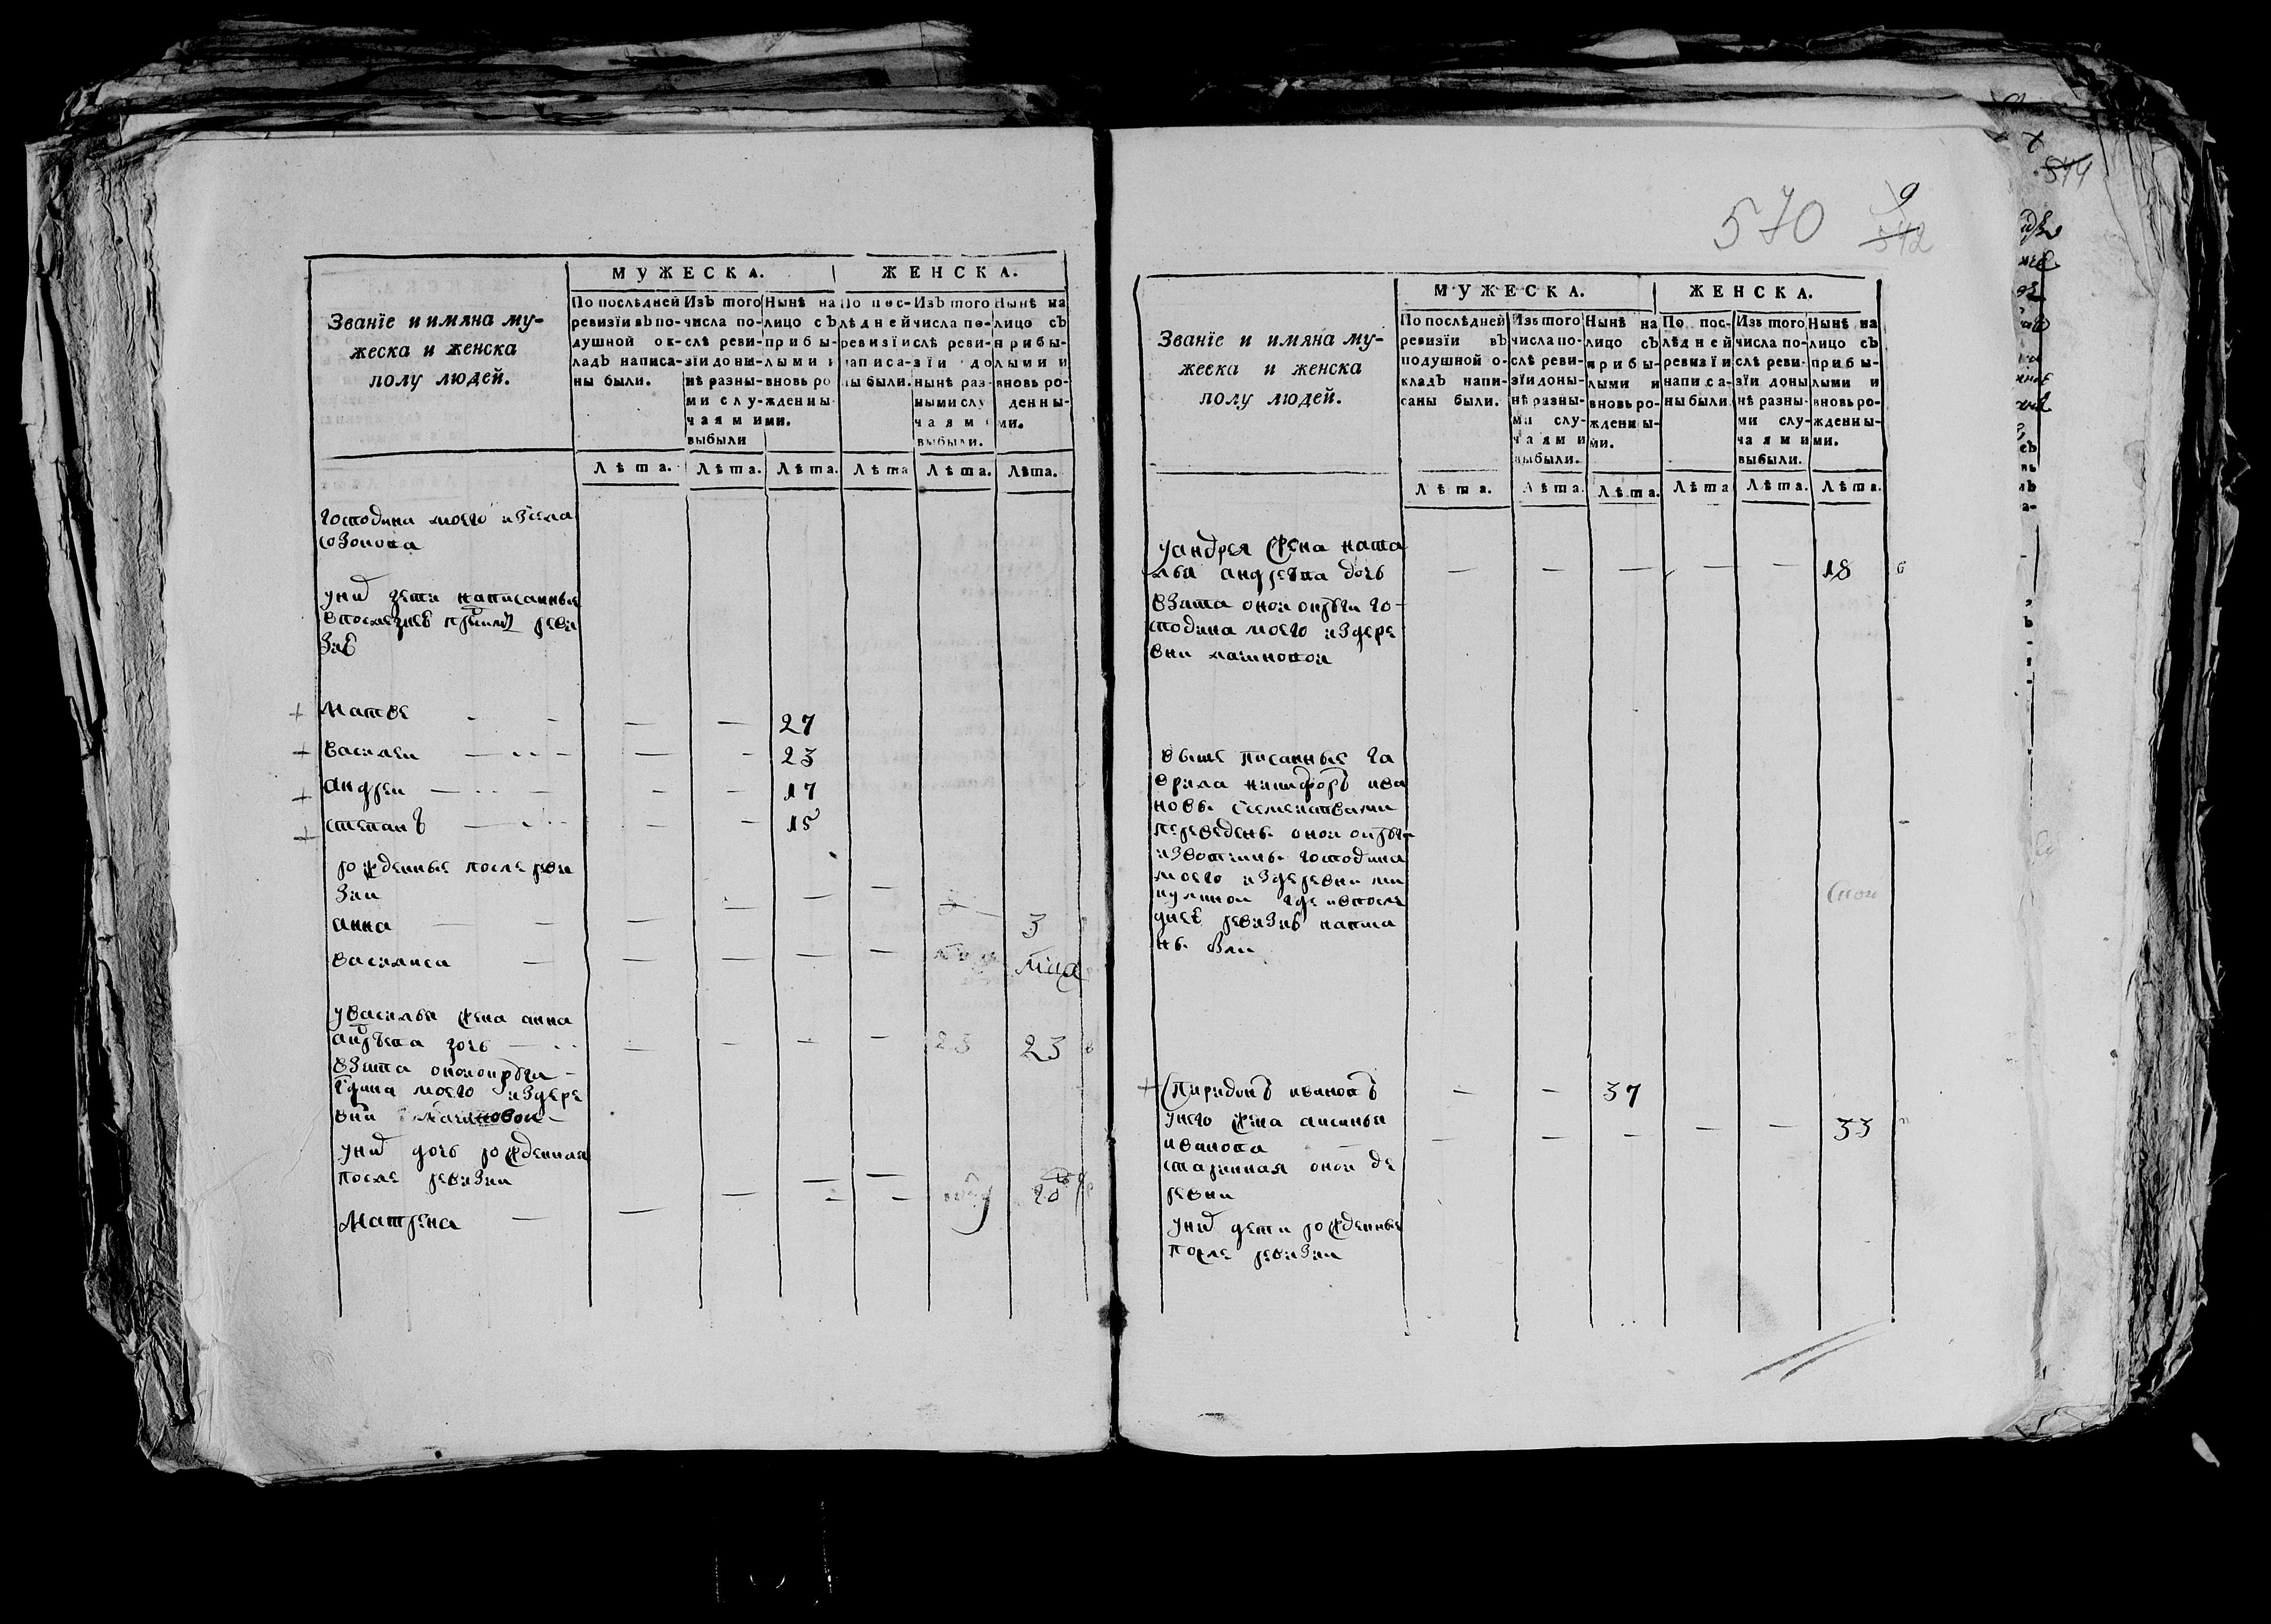 МУЖЕСКА. ЖЕНСКА.
Званїе и имяна му-
жеска и женска
полу людей.
По послѣдней ревизїи въ по-
душной ок-
ладъ написа-
ны были.
Изъ того
числа по-
слѣ реви-
зїи доны-
нѣ разны-
ми слу-
чаями
выбыли
Нынѣ на
лицо съ
прибы-
лыми и
вновь ро
жденны
ми.
По пос-
лѣдней
ревизїи
написа-
ны были.
Изъ того
числа по-
слѣ реви-
зїи до
нынѣ раз-
ными слу
чаями
выбыли.
Нынѣ на
лицо съ
прибы-
лыми и
вновь ро-
денны-
ми.
Лѣта. Лѣта. Лѣта. Лѣта Лѣта. Лѣта.
господина моего изсела
созонова
уних дети написанные
впоследнеѣ реви
зиѣ
матве 27
василеи 23
андреи 17
степанъ 15
рожденные после реви
зии
анна 3
василиса
увасилья жена анна
дочь 23
взята оной округи
гдина моего издере
вни
уних дочь рожденная
после ревизии
матрена
570 9
542
МУЖЕСКА. ЖЕНСКА.
Званїе и имяна му-
жеска и женска
полу людей.
По послѣдней
ревизїи въ
подушной о-
кладъ напи-
саны были.
Изъ того
числа по-
слѣ реви-
зїи доны-
нѣ разны-
ми слу-
чаями
выбыли.
Нынѣ на
лицо съ
прибы-
лыми и
вновь ро-
жденны-
ми.
По пос-
лѣдней
ревизїи
написа-
ны были.
Изъ того
числа по-
слѣ реви-
зїи доны
нѣ разны-
ми слу-
чаями
выбыли.
Нынѣ на
лицо съ
прибы-
лыми и
вновь ро-
жденны-
ми.
Лѣта. Лѣта. Лѣта. Лѣта Лѣта. Лѣта.
уандрея жена ната
лья андрева дочь 18
взята оной округи го-
сподина моего издере
вни
выше писанные га
врила никифоръ ива
новы ссеменствами
переведены оной округи
извотчины господина
моего издеревни ми
кулиной где ипосле
днеѣ ревизиѣ написа
ны
спиридонъ ивановъ 37
унего жена аксинья 33
иванова
старинная оной де
ревни
уних дети рожденные
после ревизии
544